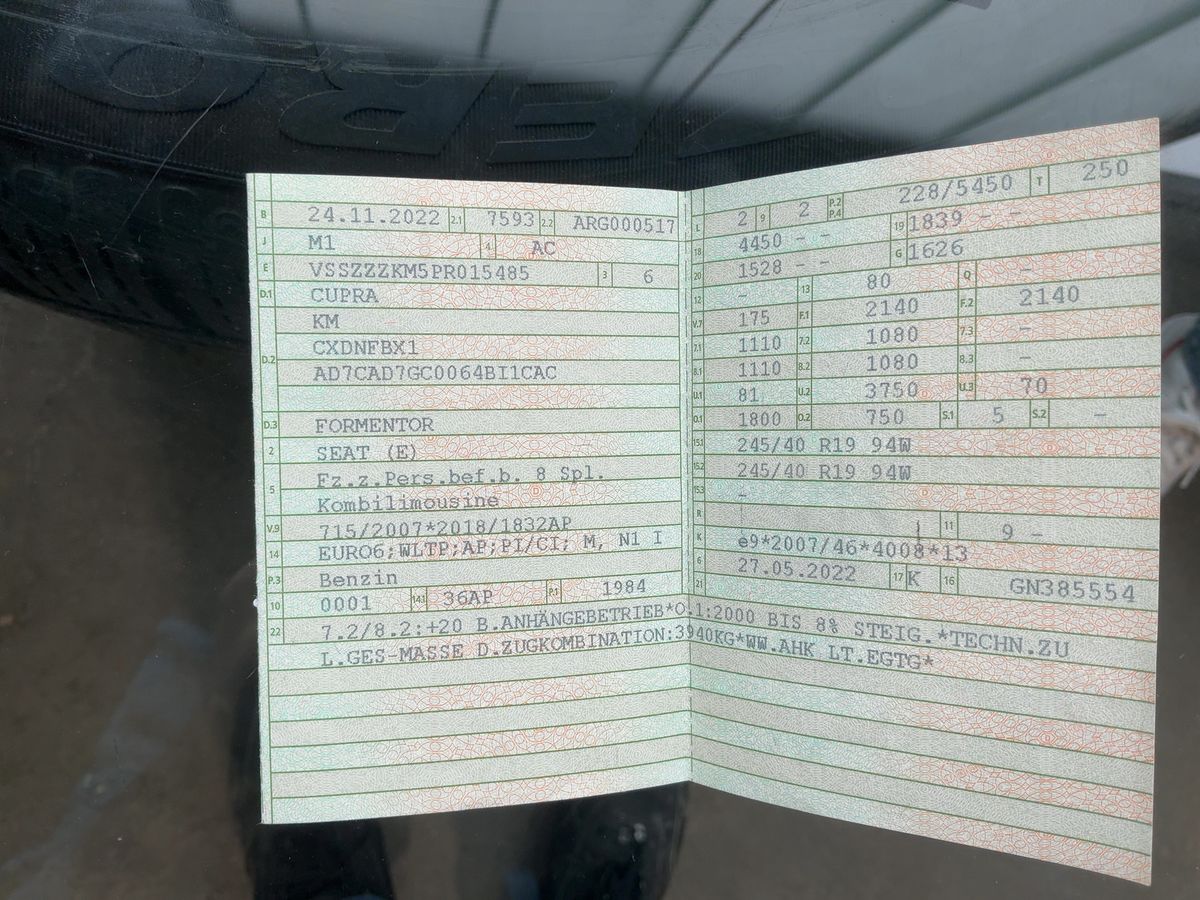 ZERO
B 24.11.2022 2.1 7593 2.2 ARG000517
J M1 4 AC
E VSSZZZKM5PR015485 3 6
D.1 CUPRA
KM
D.2 CXDNFBX1
AD7CAD7GC0064BI1CAC
D.3 FORMENTOR
2 SEAT (E)
5 Fz.z.Pers.bef.b. 8 Spl.
Kombilimousine
V.9 715/2007*2018/1832AP
14 EURO6;WLTP;AP;PI/CI; M, N1 I
P.3 Benzin
10 0001 14.1 36AP P.1 1984
L 2 9 2 P.2 P.4 228/5450 T 250
18 4450 - - 19 1839 - -
20 1528 - - G 1626
12 - 13 80 Q -
V.7 175 F.1 2140 F.2 2140
7.1 1110 7.2 1080 7.3 -
8.1 1110 8.2 1080 8.3 -
U.1 81 U.2 3750 U.3 70
O.1 1800 O.2 750 S.1 5 S.2 -
15.1 245/40 R19 94W
15.2 245/40 R19 94W
15.3 -
R 11 9 -
K e9*2007/46*4008*13
6 27.05.2022 17 K 16 GN385554
21
22 7.2/8.2:+20 B.ANHÄNGEBETRIEB*O.1:2000 BIS 8% STEIG.*TECHN.ZU
L.GES-MASSE D.ZUGKOMBINATION:3940KG*WW.AHK LT.EGTG*